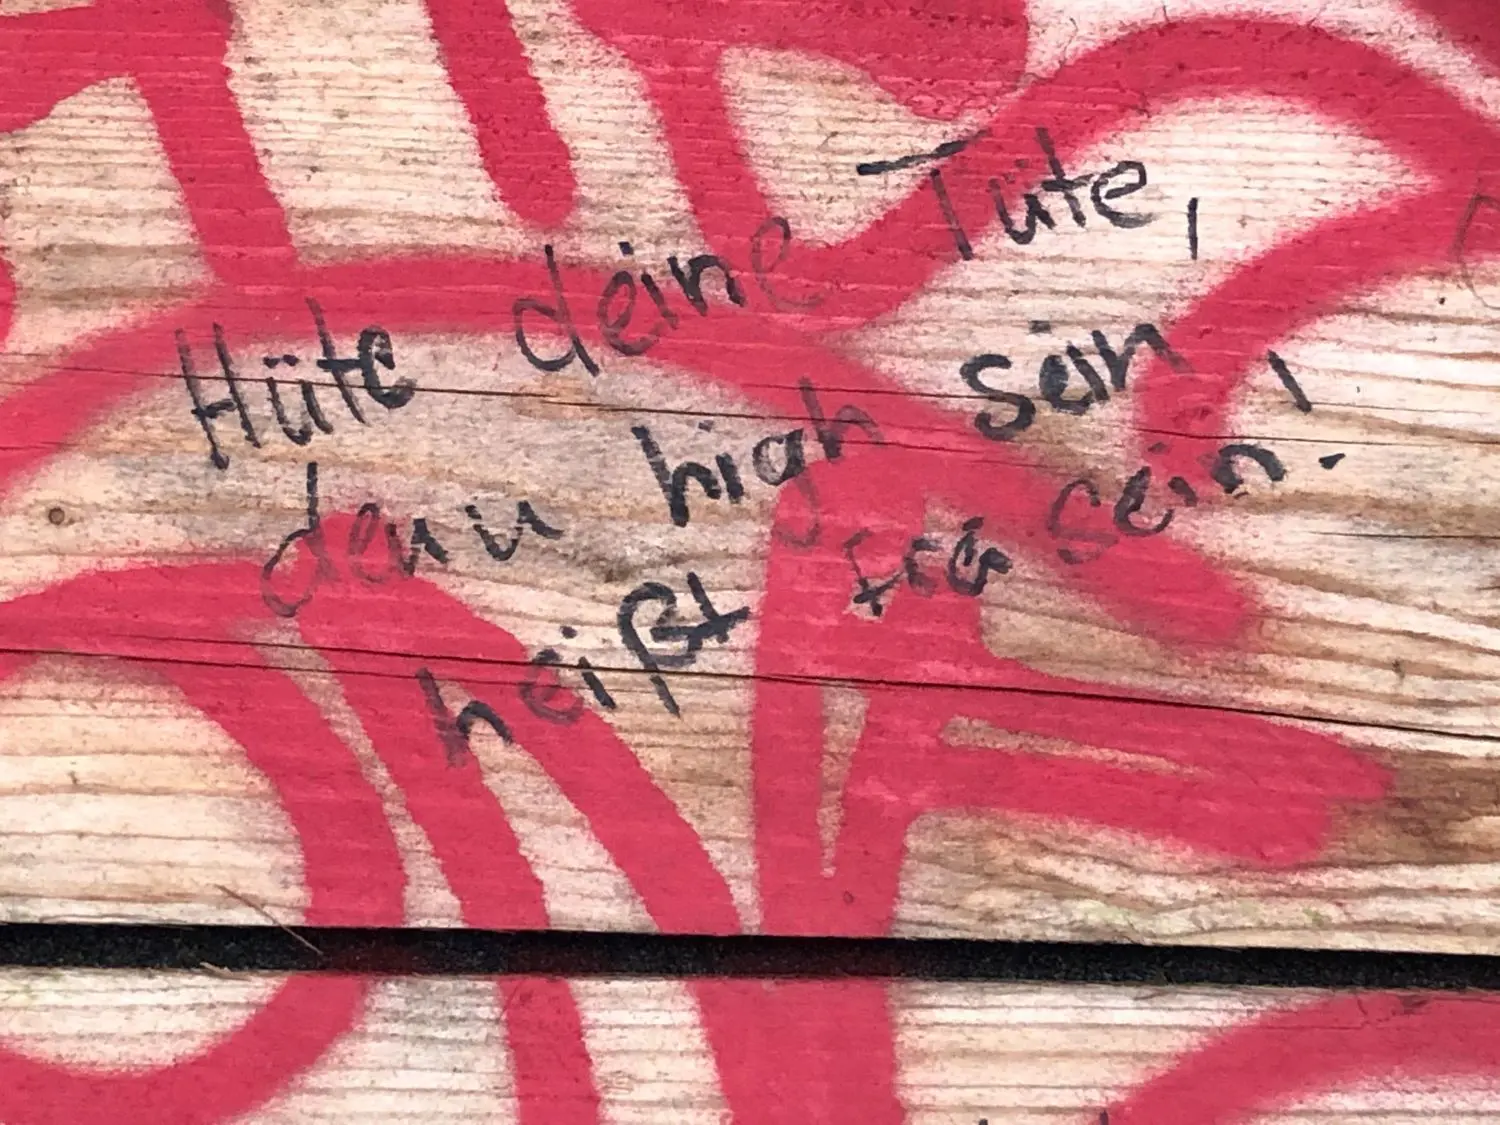 Hüte deine Tüte,
denn high sein
heißt frei sein!